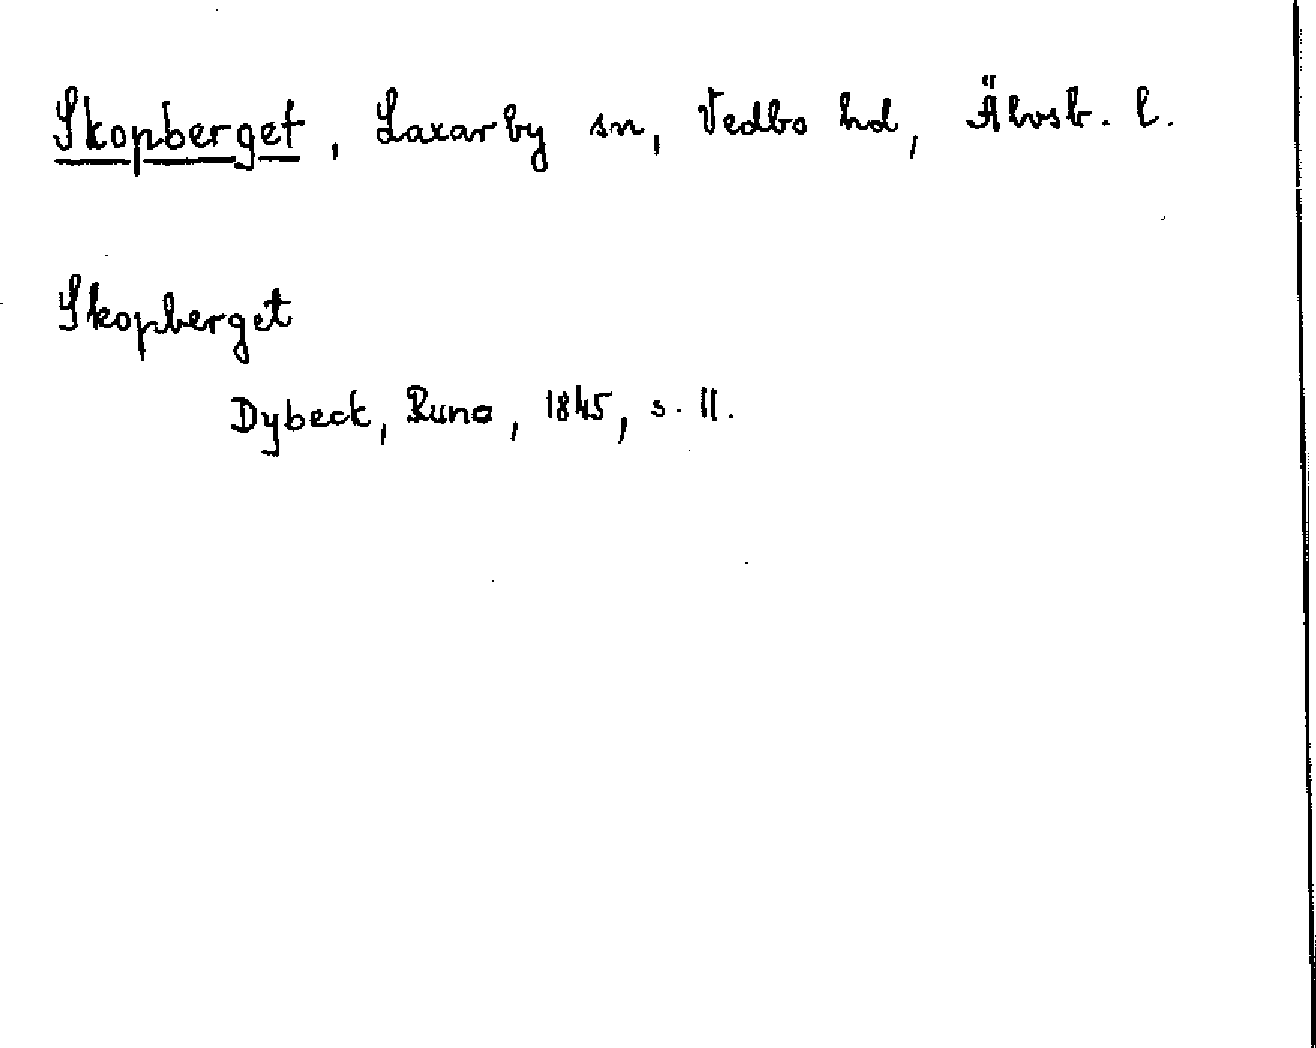 Skopberget, Laxarby sn, Vedbo hd, Älvsb. l.
Skopberget
Dybeck, Runa, 1845, s. 11.